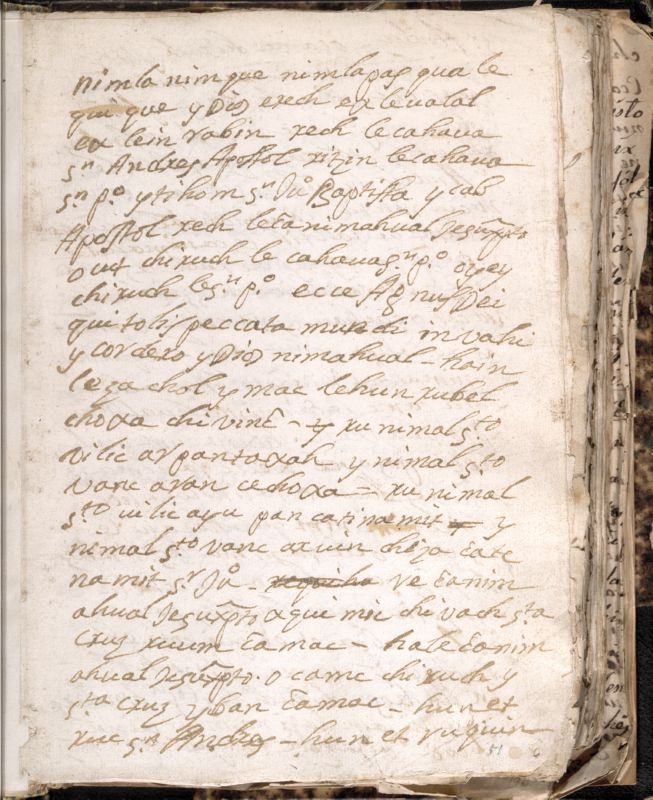 nimla nimque nimla pasqua le
qui que y Dios xech exlevatal
ex lein rabin xech le cahava
s.n Andres Apostol xitzin le cahava
s.n p.o y tihom s.n Ju.o Baptista y cab
Apostol xech le ca nimahual Jesuxpto
o ux chi xuch le cahava s.n p.o oyey
chi xuch le s.n p.o ecce Agnus Dei
qui tolis peccata mundi in vahi
y cordero y Dios nimahual - hain
leza chol y mac lehun xubel
choxa chi vinc - y xu nimal s.to
vilic ar pan taxah y nimal s.to
vanc aran ce choxa - xu nimal
s.to vilic ayu pan catinamit y
nimal s.to vanc ax vin chiza ca te
namit s.r Ju.o - ve ca nim
ahual Jesuxpto aqui mic chi vach s.ta
cruz xuum ca mac - hale ca nim
ahual Jesuxpto. o camc chi xuch y
s.ta cruz y ban ca mac - hun et
xuc s.n Andres - hun et ru quin
51